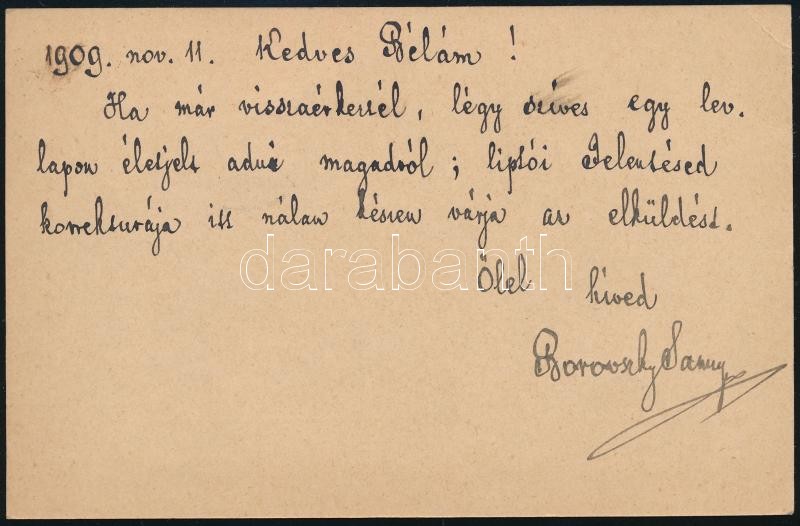 1909. nov. 11. Kedves Bélám !
Ha már visszaérkeztél, légy szíves egy lev.
lapon életjelt adni magadról ; liptói Jelentésed
korrekturája itt nálam készen várja az elküldést.
Ölel híved
Borovszky Samu
darabanth